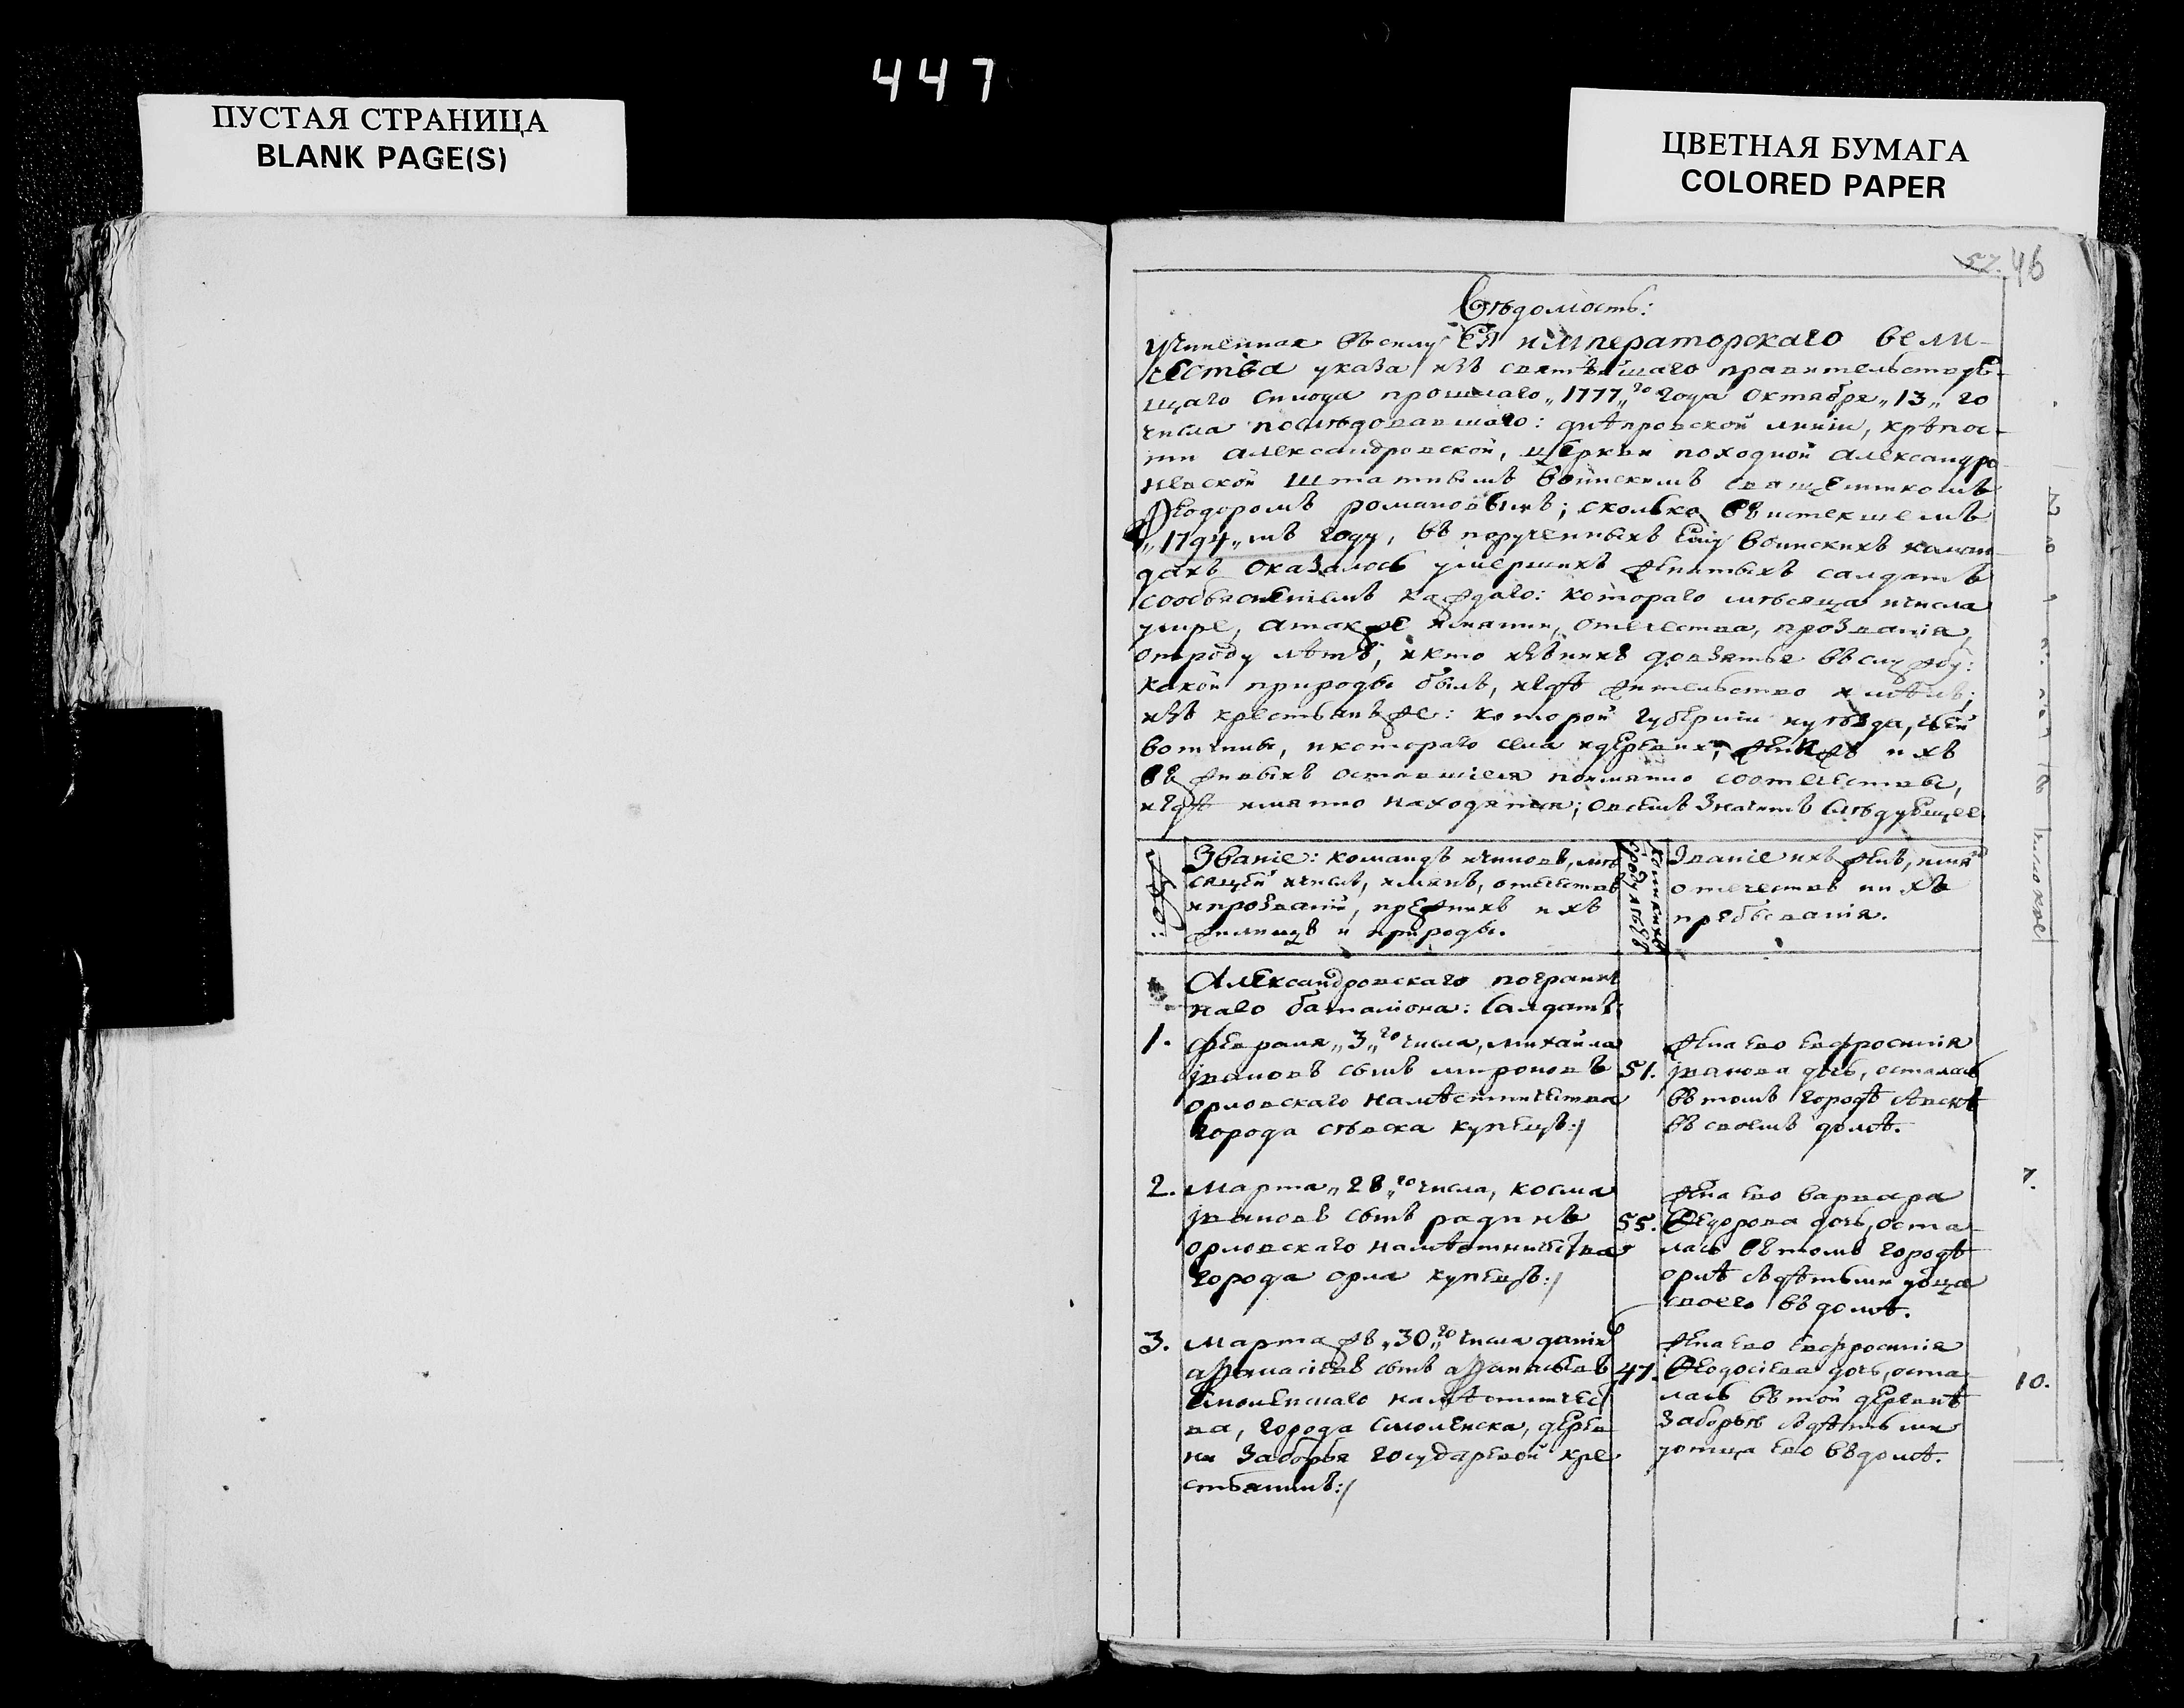 447
ПУСТАЯ СТРАНИЦА
BLANK PAGE(S)
ЦВЕТНАЯ БУМАГА
COLORED PAPER
57. 46
Вѣдомость:
учиненная въсилу ЕЯ императорскаго вели-
чества указа изъ святѣйшаго правительствую-
щаго синода прошлаго „1777„го года октября „13„ го
числа послѣдовавшаго: днѣпровской линіи, крѣпос-
ти александровской, церкви походной александро
невской штатнымъ воинскимъ священникомъ
Ѳеодоромъ романовымъ; сколько въистекшемъ
„1794„мъ году, въ порученныхъ ему воинскихъ каман
дахъ оказалось умершихъ женатыхъ салдатъ
сообьясненіемъ каждаго: котораго мѣсяца ичисла
умре, атакже имянии, отечества, прозванія,
отроду лѣтъ, икто изънихъ довзятья въслужбу:
какой природы былъ, игдѣ жительство имѣлъ;
изъ крестьянъ же: которой губерніи иуѣзда, чьей
вотчины, икотораго села идеревни; женжъ ихъ
въ живыхъ оставшіеся поимянно соотечествы,
игдѣ имянно находятся; овсемъ значитъ слѣдующее.
Званіе: командъ ичиновъ, мѣ
сяцей ичислъ, имянъ, отечествъ
ипрозваній, прежнихъ ихъ
жилищъ и природы.
Званіе ихъ женъ, имянъ
отечествъ иихъ
пребыванія.
Александровскаго погранич
наго баталіона: Салдатъ:
1. февраля „3„го числа, михайла
ивановъ сынъ мироновъ 51.
орловскаго намѣстничества
города сѣвска купецъ:/
жена ево евфросинія
иванова дочь, осталась
въ томъ городѣ сѣвскѣ
въ своемъ домѣ.
2. марта „28„го числа, косма
ивановъ сынъ радинъ 55.
орловскаго намѣстничества
города орла купецъ:/
жена ево варвара
Ѳедорова дочь, оста
лась въ томъ городѣ
орлѣ сдѣтьми уотца
своего въ домѣ.
3. марта жъ „30„го числа даніил
аѳанасіевъ сынъ аѳанасьевъ 47.
смоленскаго намѣстничест
ва, города смоленска, дерев
ни заборья государевой кре
стьянинъ:/
жена ево евфросинія
Ѳеодосіева дочь, оста
лась въ той деревнѣ
заборьѣ сдѣтьми
уотца ево въдомѣ.
7.
10.